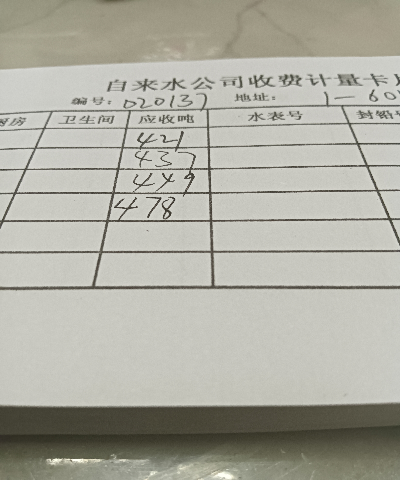 自来水公司收费计量卡片
编号: 020137 地址: 1-60
厨房 卫生间 应收吨 水表号 封铅号
421
437
449
478